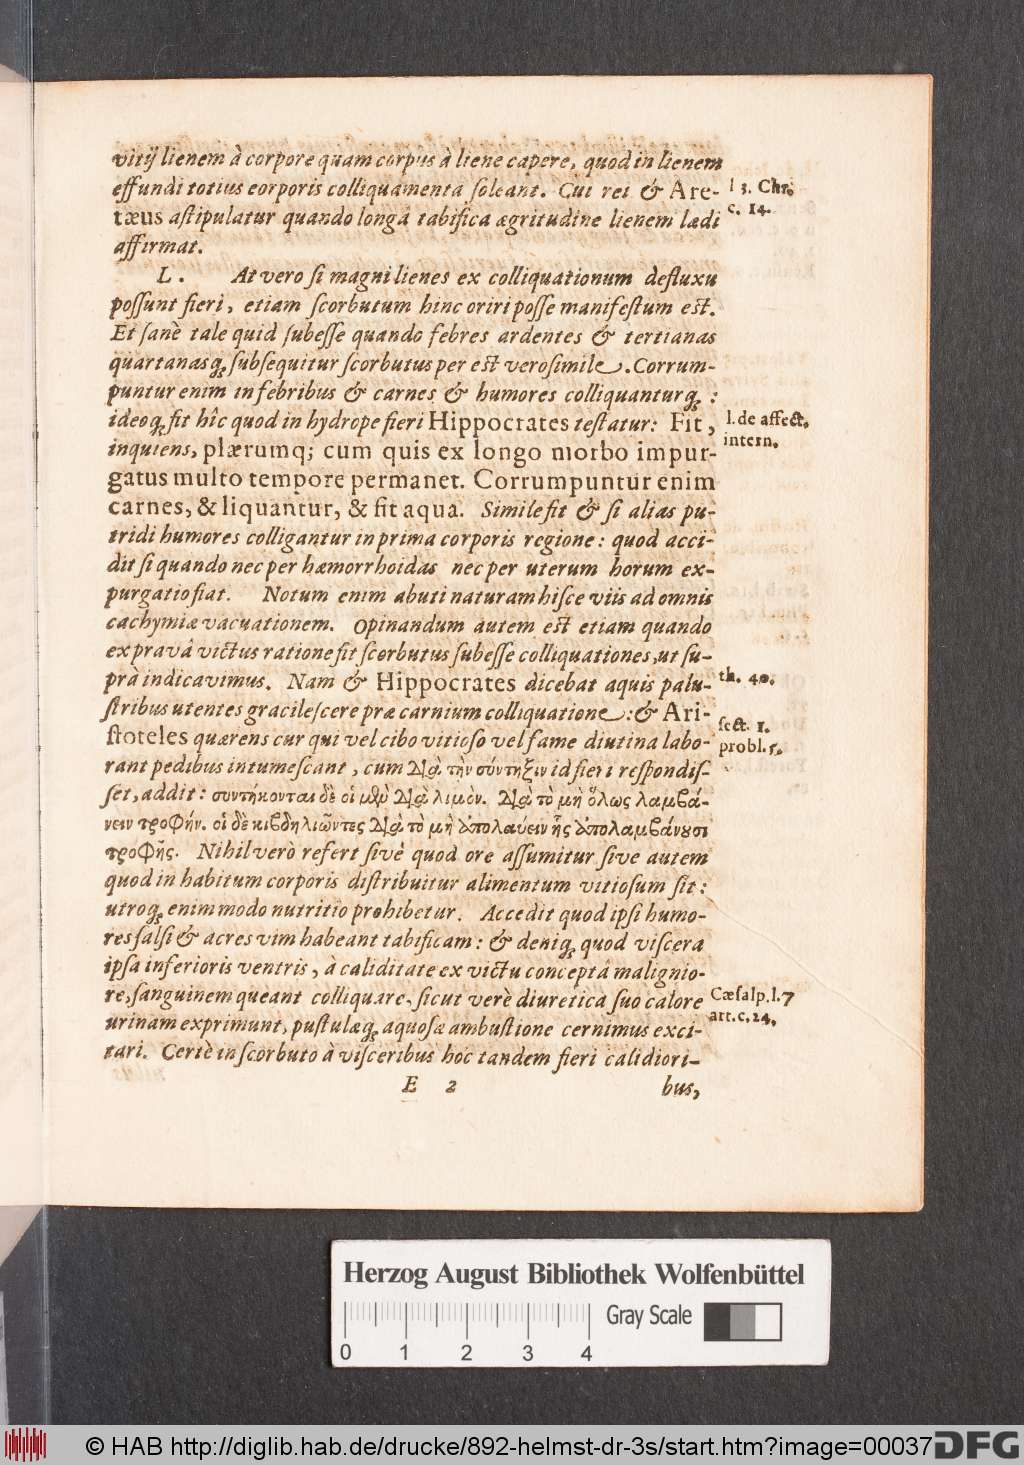 vitij lienem à corpore quam corpus à liene capere, quod in lienem
effundi totius eorporis colliquamenta soleant. Cui rei & Are-
l 3. Chr.
tæus astipulatur quando longâ tabifica ægritudine lienem lædi
c. 14.
affirmat.
L. At vero si magni lienes ex colliquationum defluxu
possunt fieri, etiam scorbutum hinc oriri posse manifestum est.
Et sanè tale quid subesse quando febres ardentes & tertianas
quartanasq; subsequitur scorbutus per est verosimile. Corrum-
puntur enim in febribus & carnes & humores colliquanturq; :
ideoq; fit hîc quod in hydrope fieri Hippocrates testatur: Fit,
l. de affect.
inquiens, plærumq; cum quis ex longo morbo impur-
intern.
gatus multo tempore permanet. Corrumpuntur enim
carnes, & liquantur, & fit aqua. Simile fit & si alias pu-
tridi humores colligantur in prima corporis regione: quod acci-
dit si quando nec per hæmorrhoidas nec per uterum horum ex-
purgatio fiat. Notum enim abuti naturam hisce viis ad omnis
cachymiæ vacuationem. Opinandum autem est etiam quando
ex pravâ victus ratione fit scorbutus subesse colliquationes, ut su-
prà indicavimus. Nam & Hippocrates dicebat aquis palu-
th. 40.
stribus utentes gracilescere præ carnium colliquatione: & Ari-
sect. 1.
stoteles quærens cur qui vel cibo vitioso vel fame diutina labo-
probl. 5.
rant pedibus intumescant, cum διὰ τὴν σύντηξιν id fieri respondis-
set, addit: συντήκονται δὲ οἱ μὲν διὰ λιμὸν. διὰ τὸ μὴ ὅλως λαμβά-
νειν τροφήν. οἱ δὲ κιβδηλιῶντες διὰ τὸ μὴ ἀπολαύειν ἧς ἀπολαμβάνουσι
τροφῆς. Nihil verò refert sive quod ore assumitur sive autem
quod in habitum corporis distribuitur alimentum vitiosum sit:
utroq; enim modo nutritio prohibetur. Accedit quod ipsi humo-
res salsi & acres vim habeant tabificam: & deniq; quod viscera
ipsa inferioris ventris, à caliditate ex victu conceptâ malignio-
re, sanguinem queant colliquare, sicut verè diuretica suo calore
Cæsalp. l. 7
urinam exprimunt, pustulæq; aquosæ ambustione cernimus exci-
art. c. 24.
tari. Certè in scorbuto à visceribus hoc tandem fieri calidiori-
E 2 bus,
Herzog August Bibliothek Wolfenbüttel
Gray Scale
0 1 2 3 4
© HAB http://diglib.hab.de/drucke/892-helmst-dr-3s/start.htm?image=00037
DFG